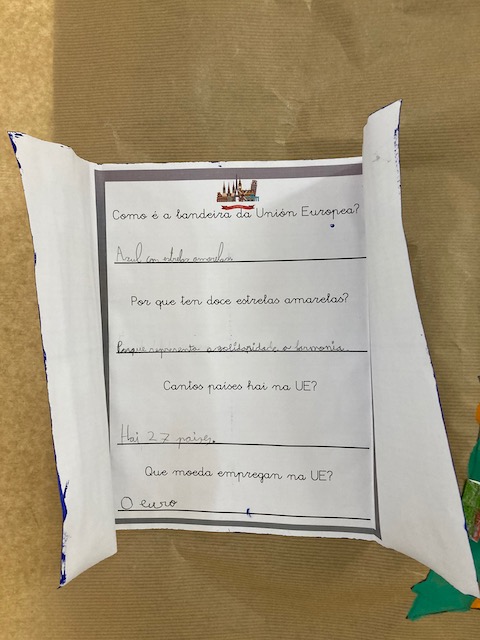 Como é a bandeira da Unión Europea?
Azul con estrelas amarelas
Por que ten doce estrelas amarelas?
Porque representa a solidaridade a harmonia
Cantos países hai na UE?
Hai 27 paises.
Que moeda empregan na UE?
O euro